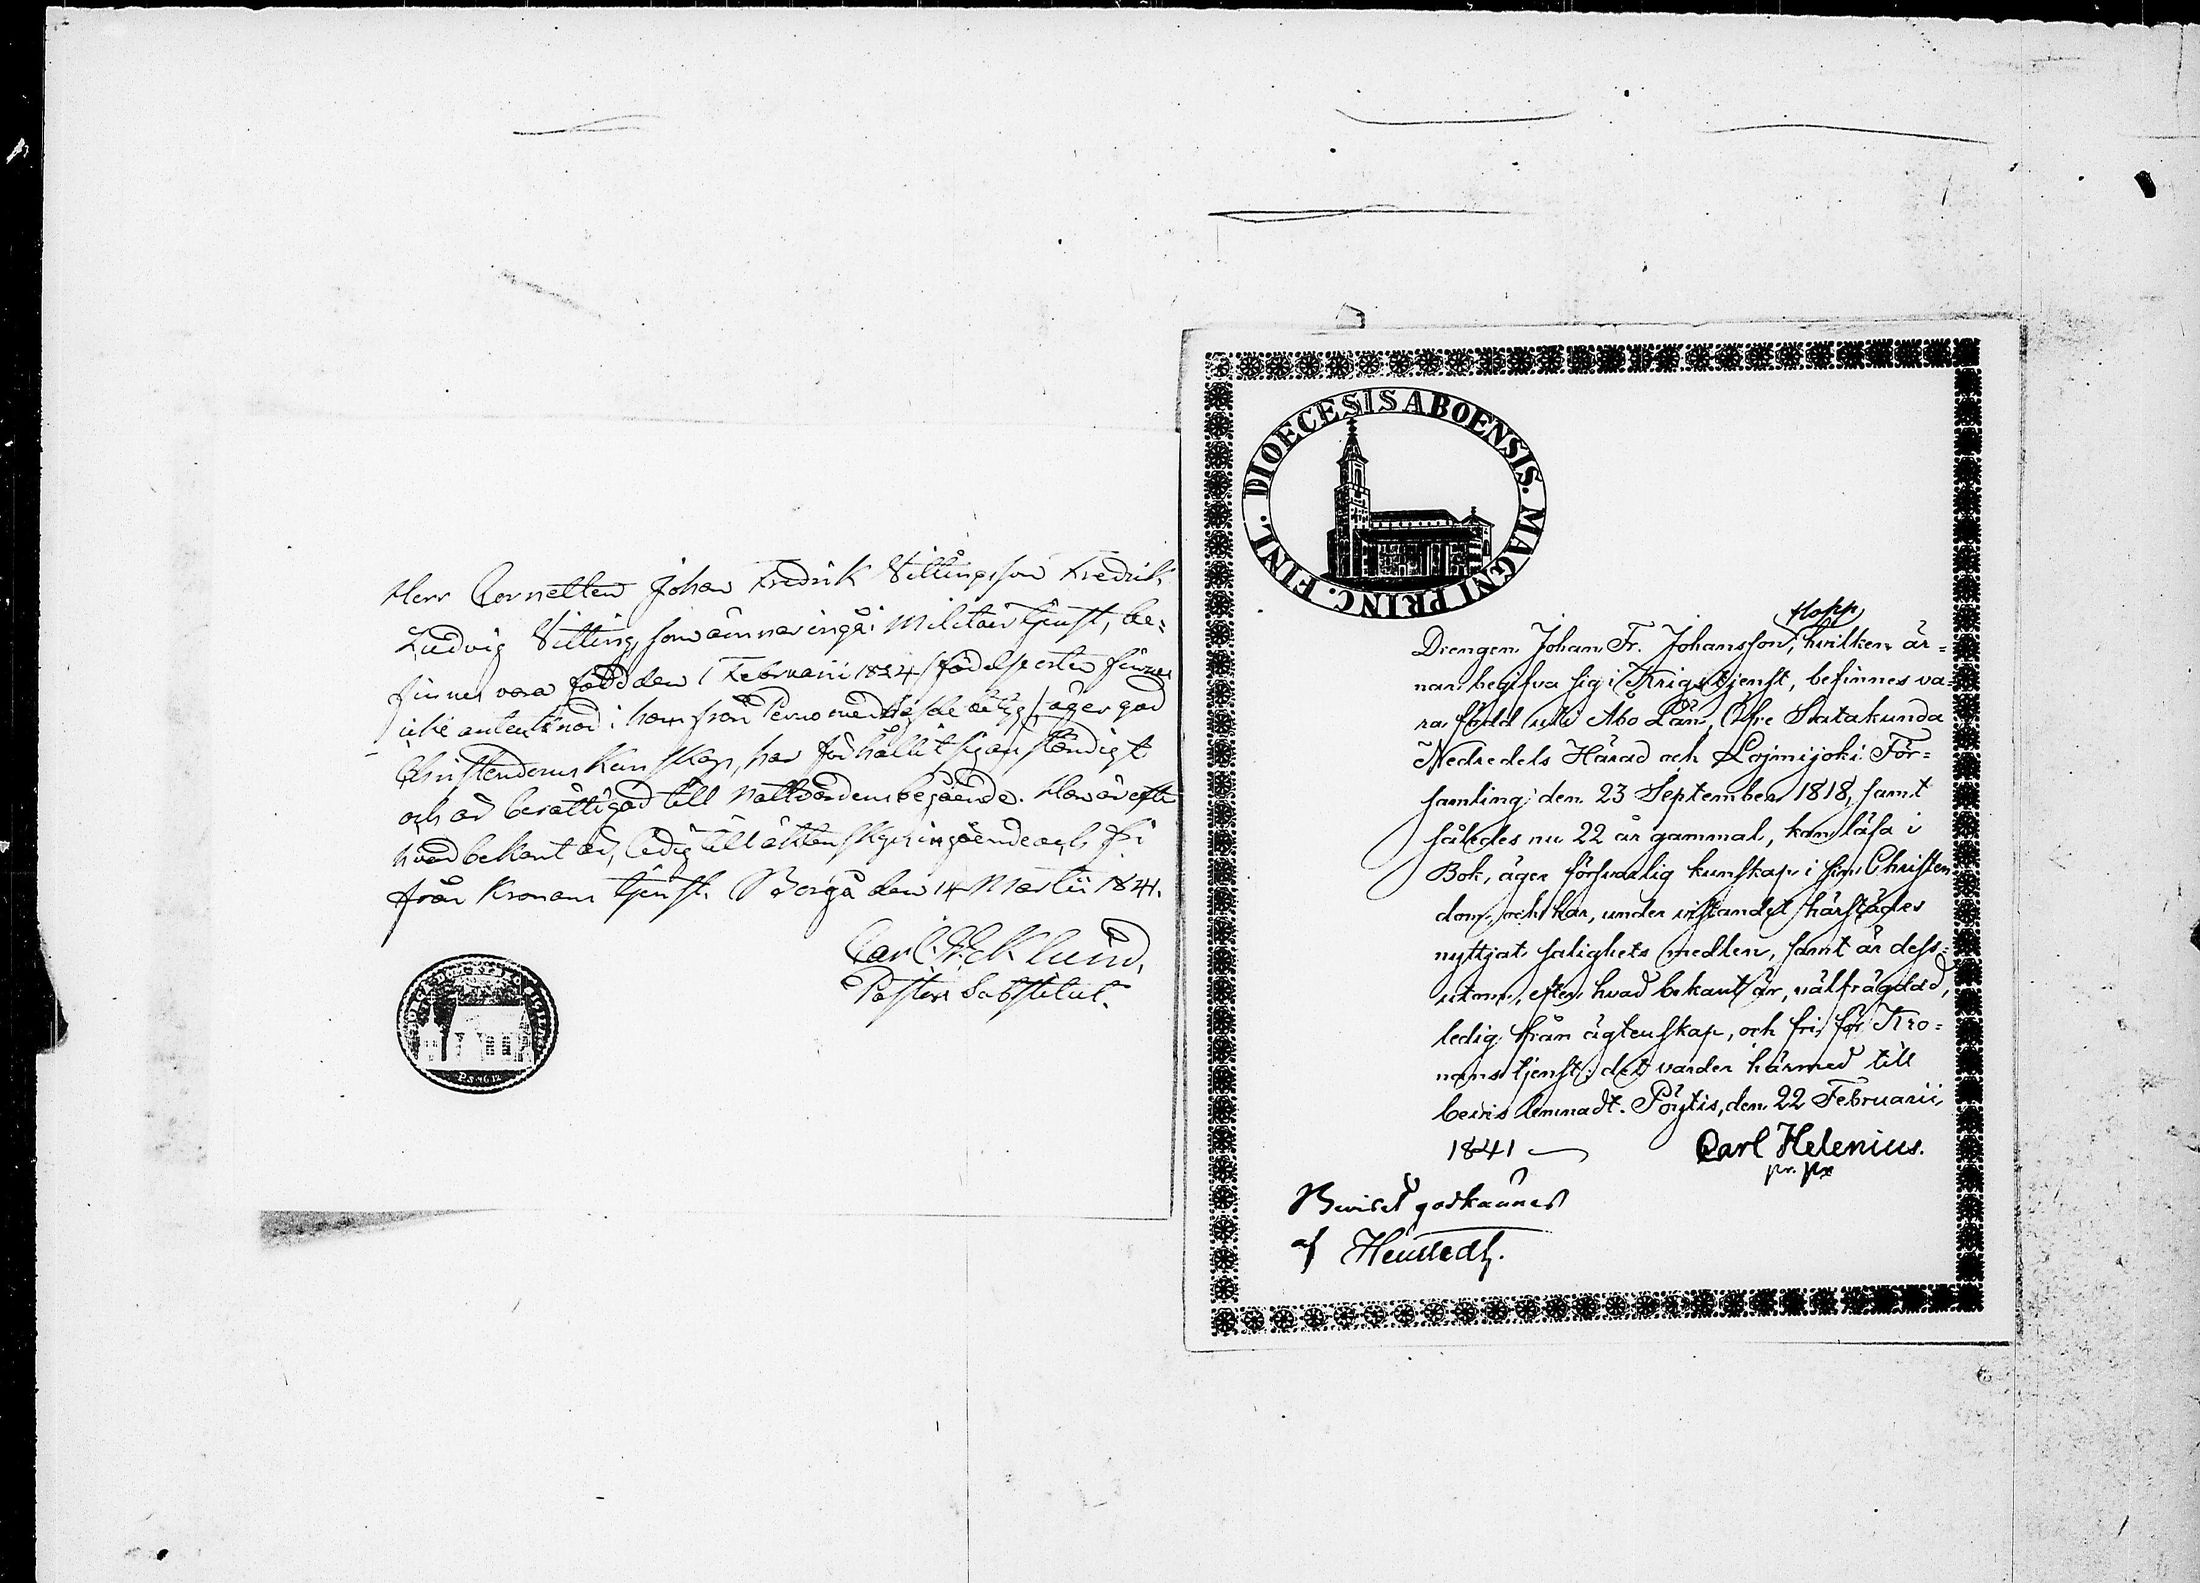 Herr Cornetten Johan Fredrik Vittingsson Fredrik
Ludvig Vitting, som ämnar ingå i Militair tjenst, be-
finnes vara född den 1 Februarii 1824 (födelseorten finnes
icke antecknad i hans från Perno medhafde betyg), äger god
Christendoms kunskap, har förhållit sig anständigt
och är berättigad till Nattvardens begående. Han är efter
hvad bekant är, ledig till äktenskaps ingående och fri
från Kronans tjenst. Borgå den 14 Martii 1841.
Carl Eklund,
Pastors Substitut.
DIOECESIS ABOENSIS. MAGNI PRINC. FINL.
Hopp
Drengen Johan Fr. Johansson, hvilken är-
nar begifva sig i Krigstjenst, befinnes va-
ra född uti Åbo Län, Öfre Satakunda
Nedredels Härad och Loimijoki För-
samling den 23 September 1818, samt
således nu 22 år gammal, kan läsa i
Bok, äger försvarlig kunskap i sin Christen
dom, och har, under vistandet härstädes
nyttjat salighets medlen, samt är dess-
utom, efter hvad bekant är, välfrägdad,
ledig från ägtenskap, och fri för Kro-
nans tjenst; det varder härmed till
bevis lemnadt. Pöytis, den 22 Februarii
1841
Carl Helenius.
Beviset godkännes
af